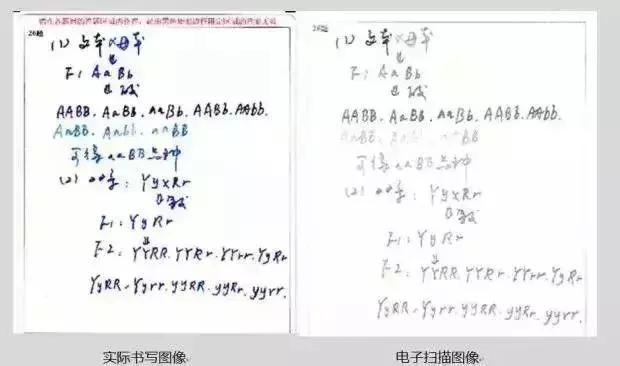 26题
(1) 父本×母本
F1: AaBb
AABB. AaBB. aaBb. AABb. AAbb.
AaBB. Aabb. aaBB
可得aaBB品种
(2) 
: YyxRr
F1: YyRr
F2: YYRR. YYRr. YYrr. YyRr
YyRR. Yyrr. yyRR. yyRr. yyrr.
26题
(1) 父本×母本
F1: AaBb
AABB. AaBB. aaBb. AABb. AAbb.
AaBB. Aabb. aaBB
可得aaBB品种
(2) 
: YyxRr
F1: YyRr
F2: YYRR. YYRr. YYrr. YyRr
YyRR. Yyrr. yyRR. yyRr. yyrr.
实际书写图像
电子扫描图像